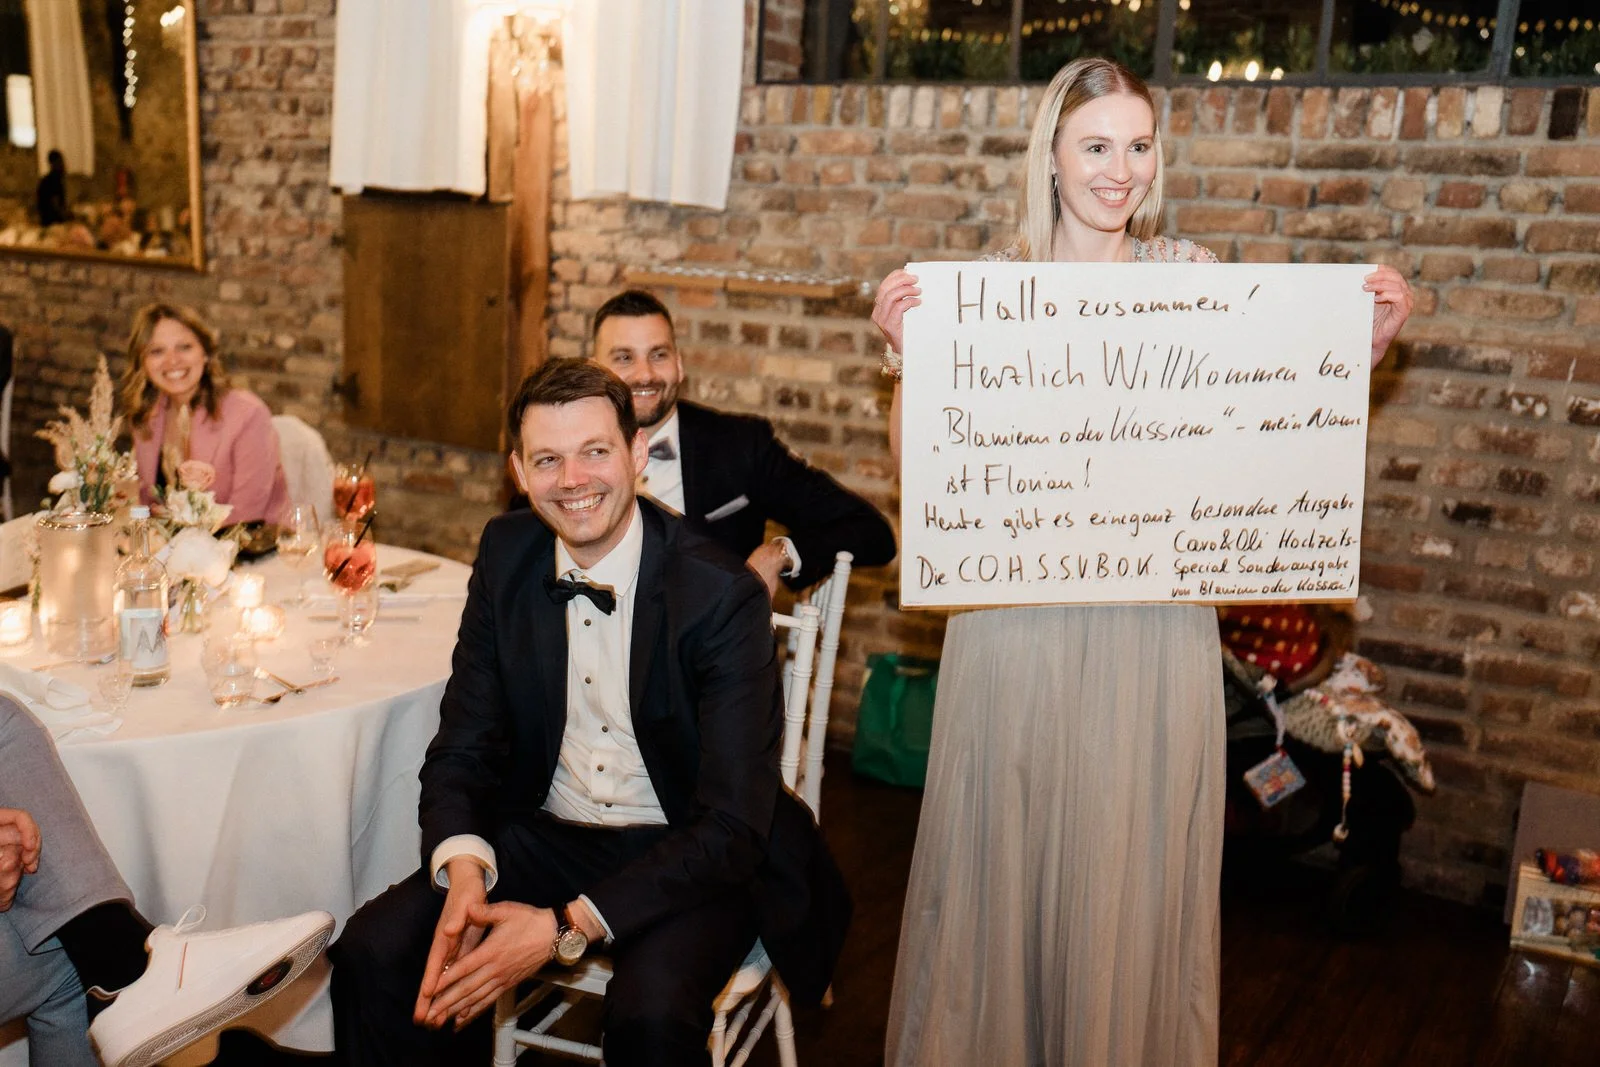 Hallo zusammen!
Herzlich Willkommen bei
„Blamieren oder Kassieren" - mein Name
ist Florian!
Heute gibt es eine ganz besondere Ausgabe
Die C.O.H.S.S.V.B.O.K.
Caro & Oli Hochzeits-
Special Sonderausgabe
von Blamieren oder Kassieren!